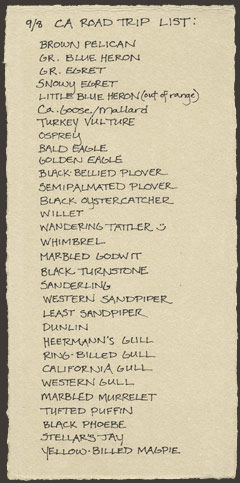 9/8 CA ROAD TRIP LIST:
BROWN PELICAN
GR. BLUE HERON
GR. EGRET
SNOWY EGRET
LITTLE BLUE HERON (out of range)
Ca. Goose/Mallard
TURKEY VULTURE
OSPREY
BALD EAGLE
GOLDEN EAGLE
BLACK-BELLIED PLOVER
SEMIPALMATED PLOVER
BLACK OYSTERCATCHER
WILLET
WANDERING TATTLER :)
WHIMBREL
MARBLED GODWIT
BLACK TURNSTONE
SANDERLING
WESTERN SANDPIPER
LEAST SANDPIPER
DUNLIN
HEERMANN'S GULL
RING-BILLED GULL
CALIFORNIA GULL
WESTERN GULL
MARBLED MURRELET
TUFTED PUFFIN
BLACK PHOEBE
STELLAR'S JAY
YELLOW-BILLED MAGPIE